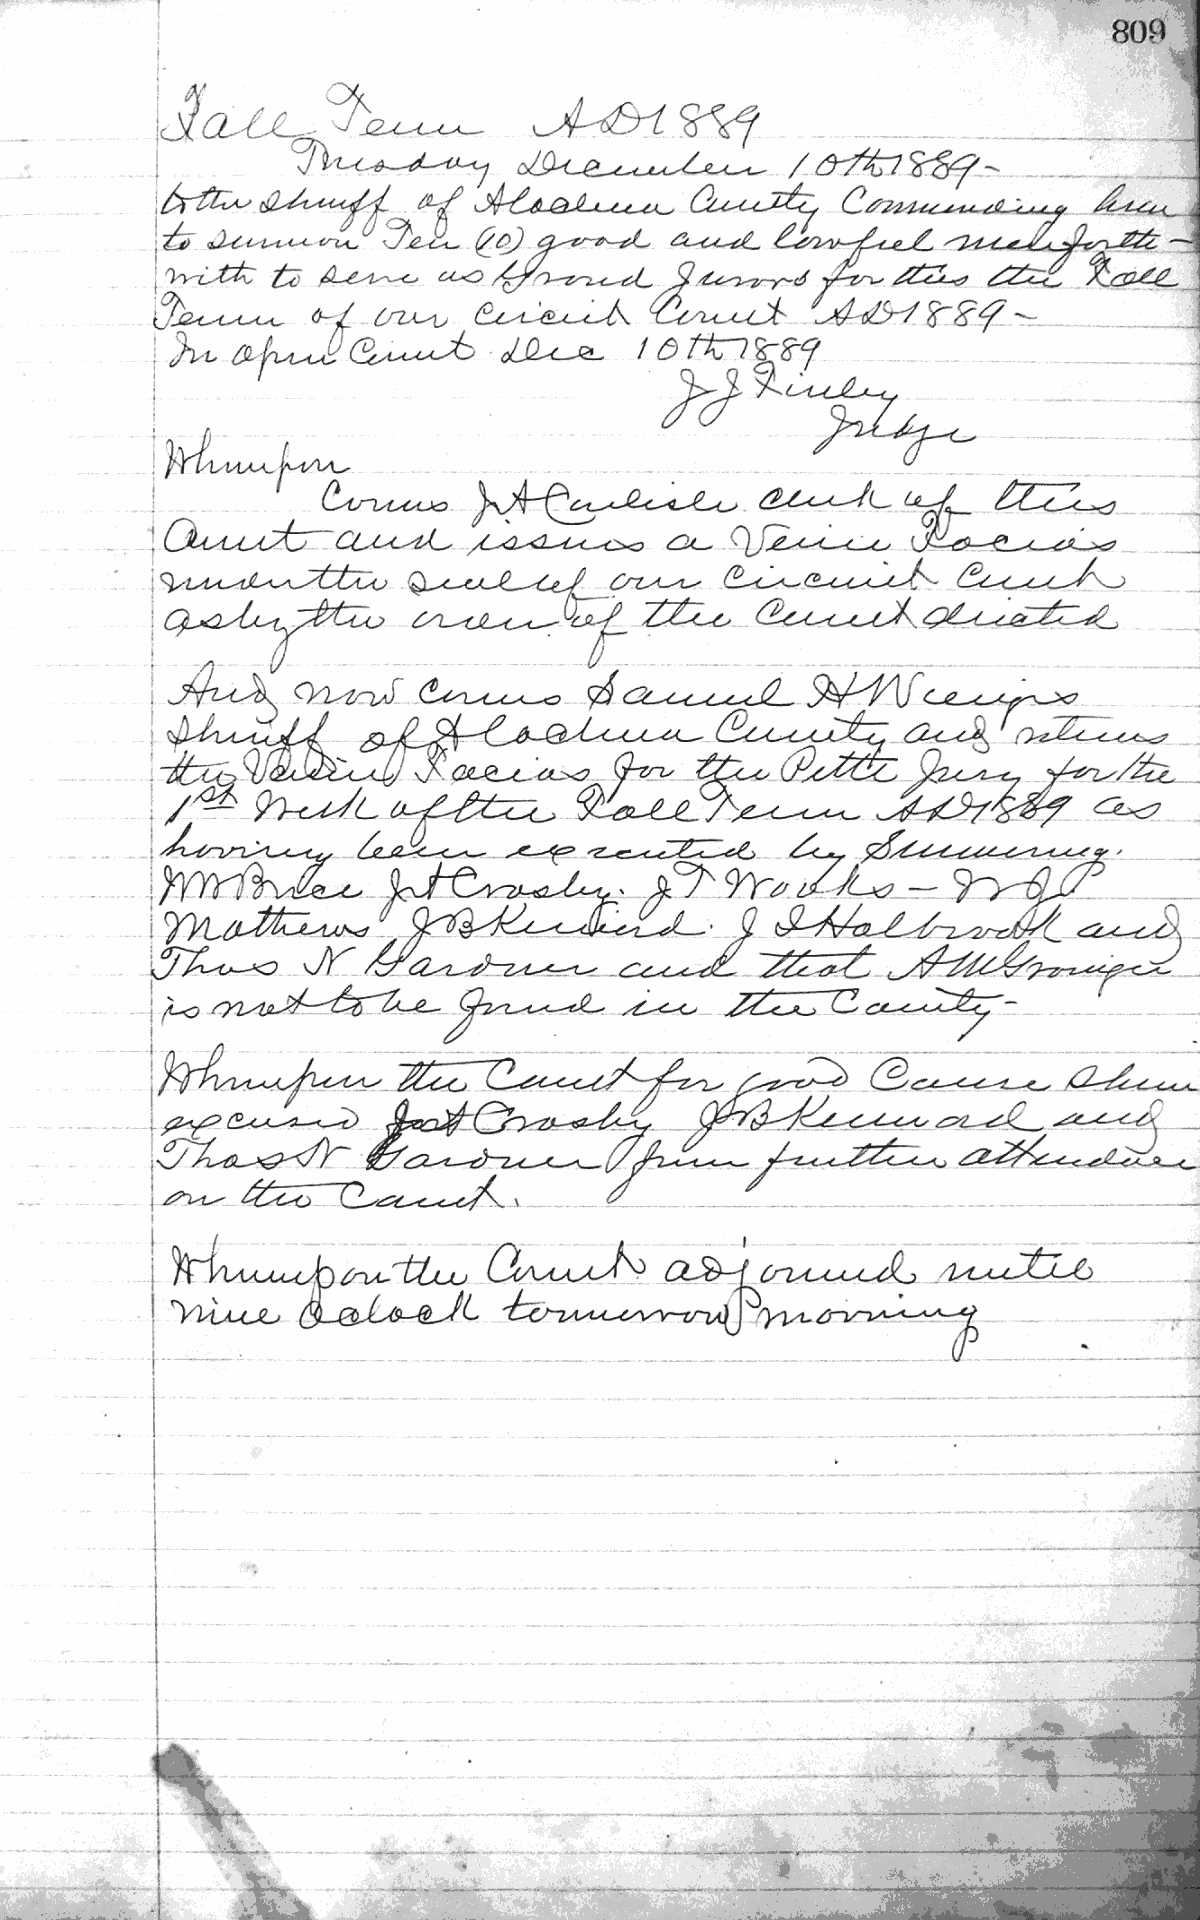 809
Fall Term AD 1889
Tuesday December 10th 1889-
to the Sheriff of Alachua County Commanding him
to summon Ten (10) good and lawful men forth-
with to serve as Grand Jurors for this the Fall
Term of our Circuit Court AD 1889-
In open Court Dec 10th 1889
J J Finley
Judge
Whereupon
Comes J A Carlisle clerk of this
Court and issues a Venire Facias
under the seal of our Circuit Court
as by the order of the Court directed
And now comes Samuel H Wienges
Sheriff of Alachua County and returns
the Venire Facias for the Petit Jury for the
1st Week of the Fall Term AD 1889 as
having been executed by Summoning.
Brice J A Crosby. J T Weeks - W J
Mathews J B Kennard. J I Holbrook and
Thos N Gardner and that A M Granger
is not to be found in the County-
Whereupon the Court for good Cause shown
excused J A Crosby J B Kennard and
Thos N Gardner from further attendance
on the Court.
Whereupon the Court adjourned until
nine Oclock tomorrow morning